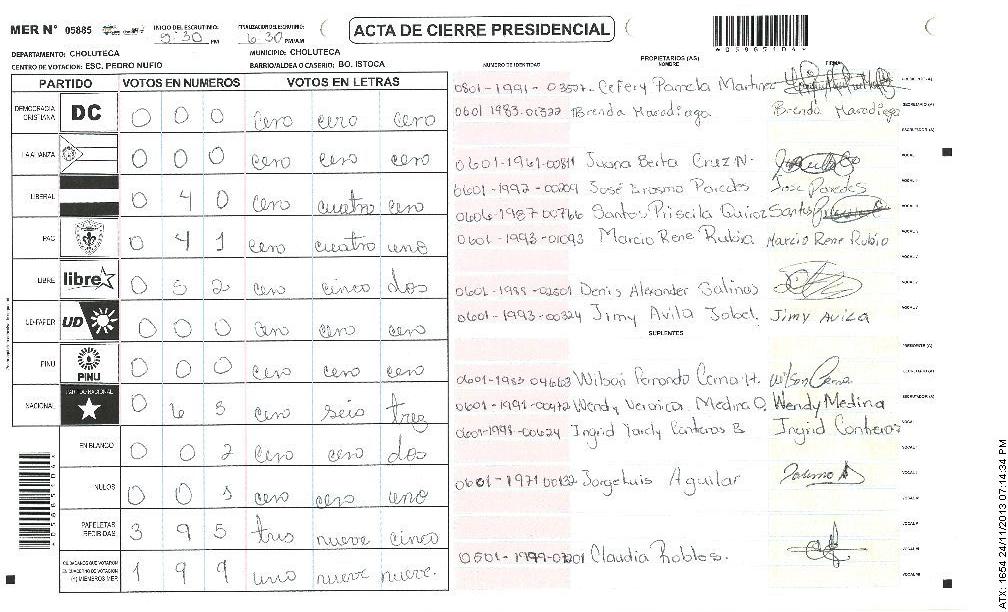 MER N° 05885
INICIO DEL ESCRUTINIO: 5:30 PM
FINALIZACION DEL ESCRUTINIO: 6:30 PM/AM
ACTA DE CIERRE PRESIDENCIAL
DEPARTAMENTO: CHOLUTECA MUNICIPIO: CHOLUTECA
CENTRO DE VOTACION: ESC. PEDRO NUFIO BARRIO/ALDEA O CASERIO: BO. ISTOCA
PARTIDO VOTOS EN NUMEROS VOTOS EN LETRAS
DEMOCRACIA CRISTIANA DC 0 0 0 cero cero cero
LA ALIANZA 0 0 0 cero cero cero
LIBERAL 0 4 0 cero cuatro cero
PAC 0 4 1 cero cuatro uno
LIBRE libre 0 5 2 cero cinco dos
UD-FAPER UD 0 0 0 cero cero cero
PINU PINU 0 0 0 cero cero cero
NACIONAL PARTIDO NACIONAL 0 6 3 cero seis tres
EN BLANCO 0 0 2 cero cero dos
NULOS 0 0 1 cero cero uno
PAPELETAS RECIBIDAS 3 9 5 tres nueve cinco
CIUDADANOS QUE VOTARON EN CUADERNO DE VOTACION (+) MIEMBROS MER 1 9 9 uno nueve nueve.
NUMERO DE IDENTIDAD PROPIETARIOS (AS) NOMBRE FIRMA
Martinez
0601 1983-01322 Brenda Maradiaga Brenda Maradiaga
0601-1961-00811 Juana Berta Cruz N.
José Erasmo Paredes Jose Paredes
0606-1987 00766 Santos Priscila Quiroz Santos
0601-1993-01093 Marcio Rene Rubio Marcio Rene Rubio
Denis Alexander Salinas
0601-1993-00324 Jimy Avila Jimy Avila
SUPLENTES
Wilson
Wendy Veronica Medina O. Wendy Medina
Ingrid Contreras
0601-1971 00132 Jorge Luis Aguilar
Claudia Robles.
ATX: 1654 24/11/2013 07:14:34 PM